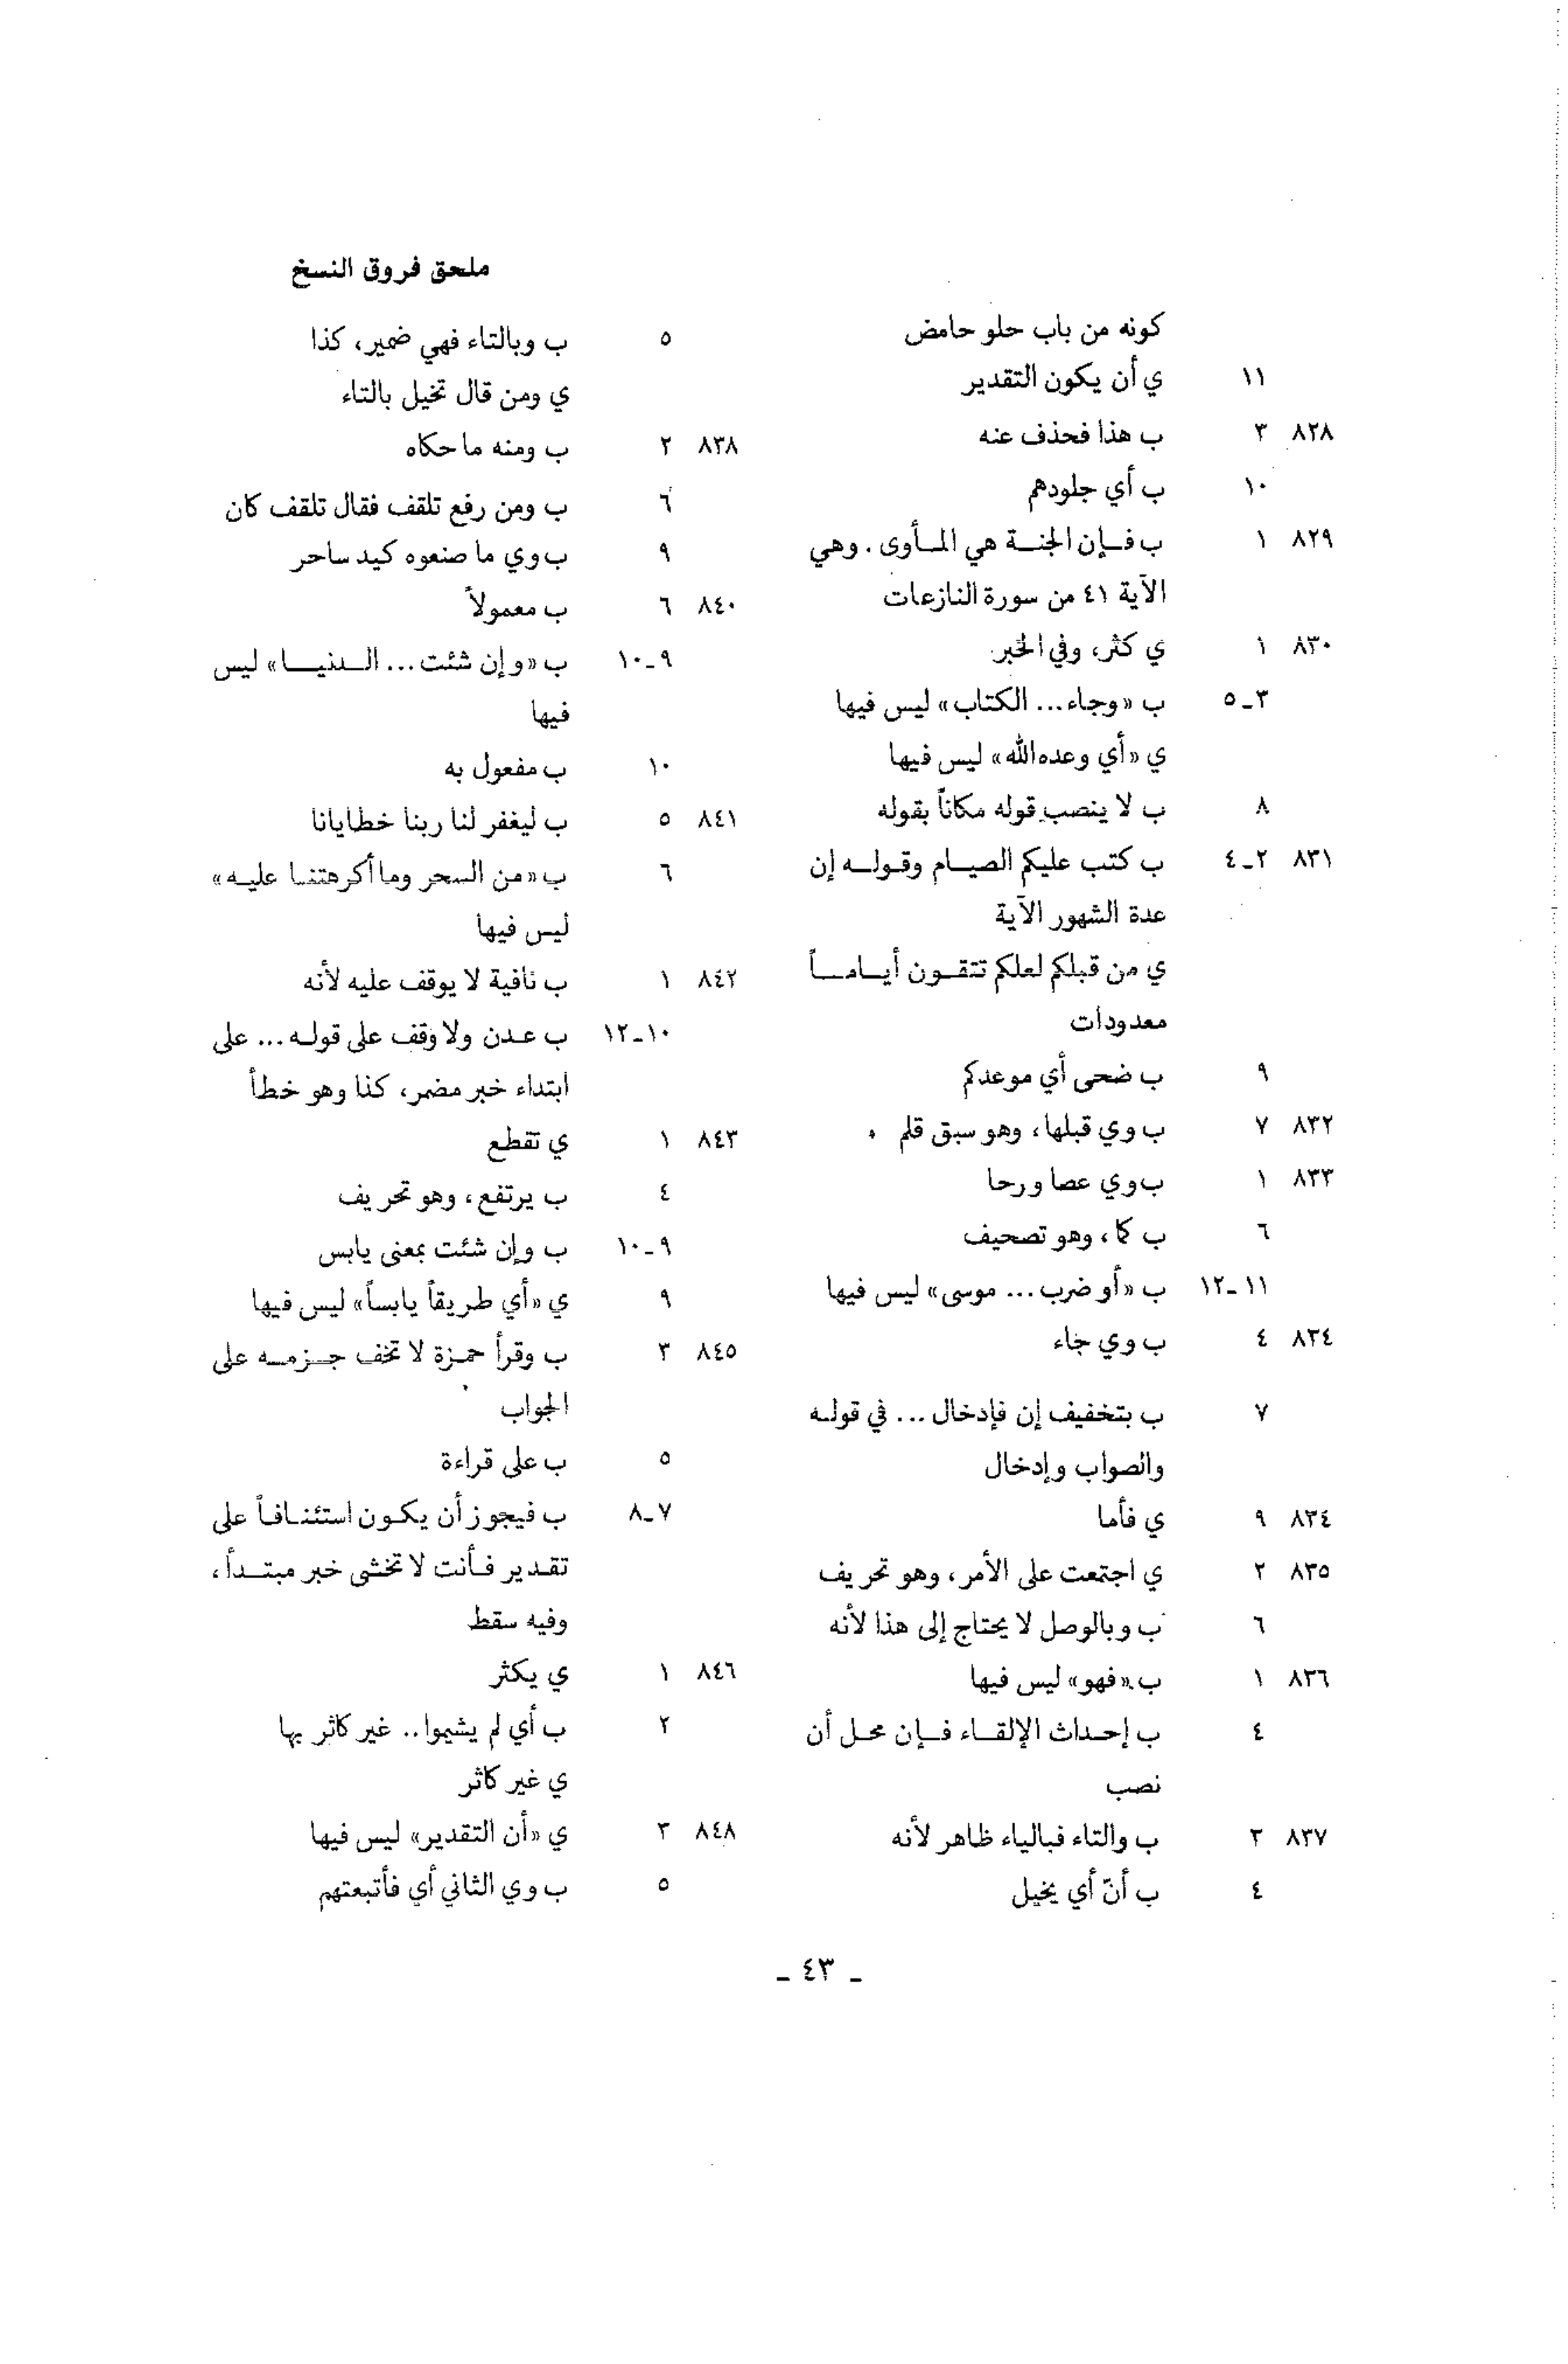 ملحق فروق النسخ
كونه من باب حلو حامض
١١ ي أن يكون التقدير
٨٢٨ ٣ ب هذا فحذف عنه
١٠ ب أي جلودهم
٨٢٩ ١ ب فإن الجنة هي المأوى . وهي
الآية ٤١ من سورة النازعات
٨٣٠ ١ ي كثر، وفي الخبر
٣-٥ ب «وجاء... الكتاب» ليس فيها
ي «أي وعده الله» ليس فيها
٨ ب لا ينصب قوله مكاناً بقوله
٨٣١ ٢-٤ ب كتب عليكم الصيام وقوله إن
عدة الشهور الآية
ي من قبلكم لعلكم تتقون أياماً
معدودات
٩ ب ضحى أي موعدكم
٨٣٢ ٧ ب وي قبلها، وهو سبق قلم
٨٣٣ ١ ب وي عصا ورحا
٦ ب كما، وهو تصحيف
١١-١٢ ب «أو ضرب... موسى» ليس فيها
٨٣٤ ٤ ب وي جاء
٧ ب بتخفيف إن فإدخال... في قوله
والصواب وإدخال
٨٣٤ ٩ ي فأما
٨٣٥ ٢ ي اجتمعت على الأمر، وهو تحريف
٦ ب وبالوصل لا يحتاج إلى هذا لأنه
٨٣٦ ١ ب «فهو» ليس فيها
٤ ب إحداث الإلقاء فإن محل أن
نصب
٨٣٧ ٢ ب والتاء فبالياء ظاهر لأنه
٤ ب أنّ أي يخيل
٥ ب وبالتاء فهي ضمير، كذا
ي ومن قال تخيل بالتاء
٨٣٨ ٢ ب ومنه ما حكاه
٦ ب ومن رفع تلقف فقال تلقف كان
٩ ب وي ما صنعوه كيد ساحر
٨٤٠ ٦ ب معمولاً
٩-١٠ ب «وإن شئت... الدنيا» ليس
فيها
١٠ ب مفعول به
٨٤١ ٥ ب ليغفر لنا ربنا خطايانا
٦ ب «من السحر وما أكرهتنا عليه»
ليس فيها
٨٤٢ ١ ب نافية لا يوقف عليه لأنه
١٠-١٢ ب عدن ولا وقف على قوله... على
ابتداء خبر مضمر، كذا وهو خطأ
٨٤٣ ١ ي تقطع
٤ ب يرتفع، وهو تحريف
٩-١٠ ب وإن شئت بمعنى يابس
٩ ي «أي طريقاً يابساً» ليس فيها
٨٤٥ ٣ ب وقرأ حمزة لا تخف جزمه على
الجواب
٥ ب على قراءة
٧-٨ ب فيجوز أن يكون استئنافاً على
تقدير فأنت لا تخشى خبر مبتدأ،
وفيه سقط
٨٤٦ ١ ي يكثر
٢ ب أي لم يشيموا.. غير كاثر بها
ي غير كاثر
٨٤٨ ٣ ي «أن التقدير» ليس فيها
٥ ب وي الثاني أي فأتبعتهم
ـ ٤٣ ـ